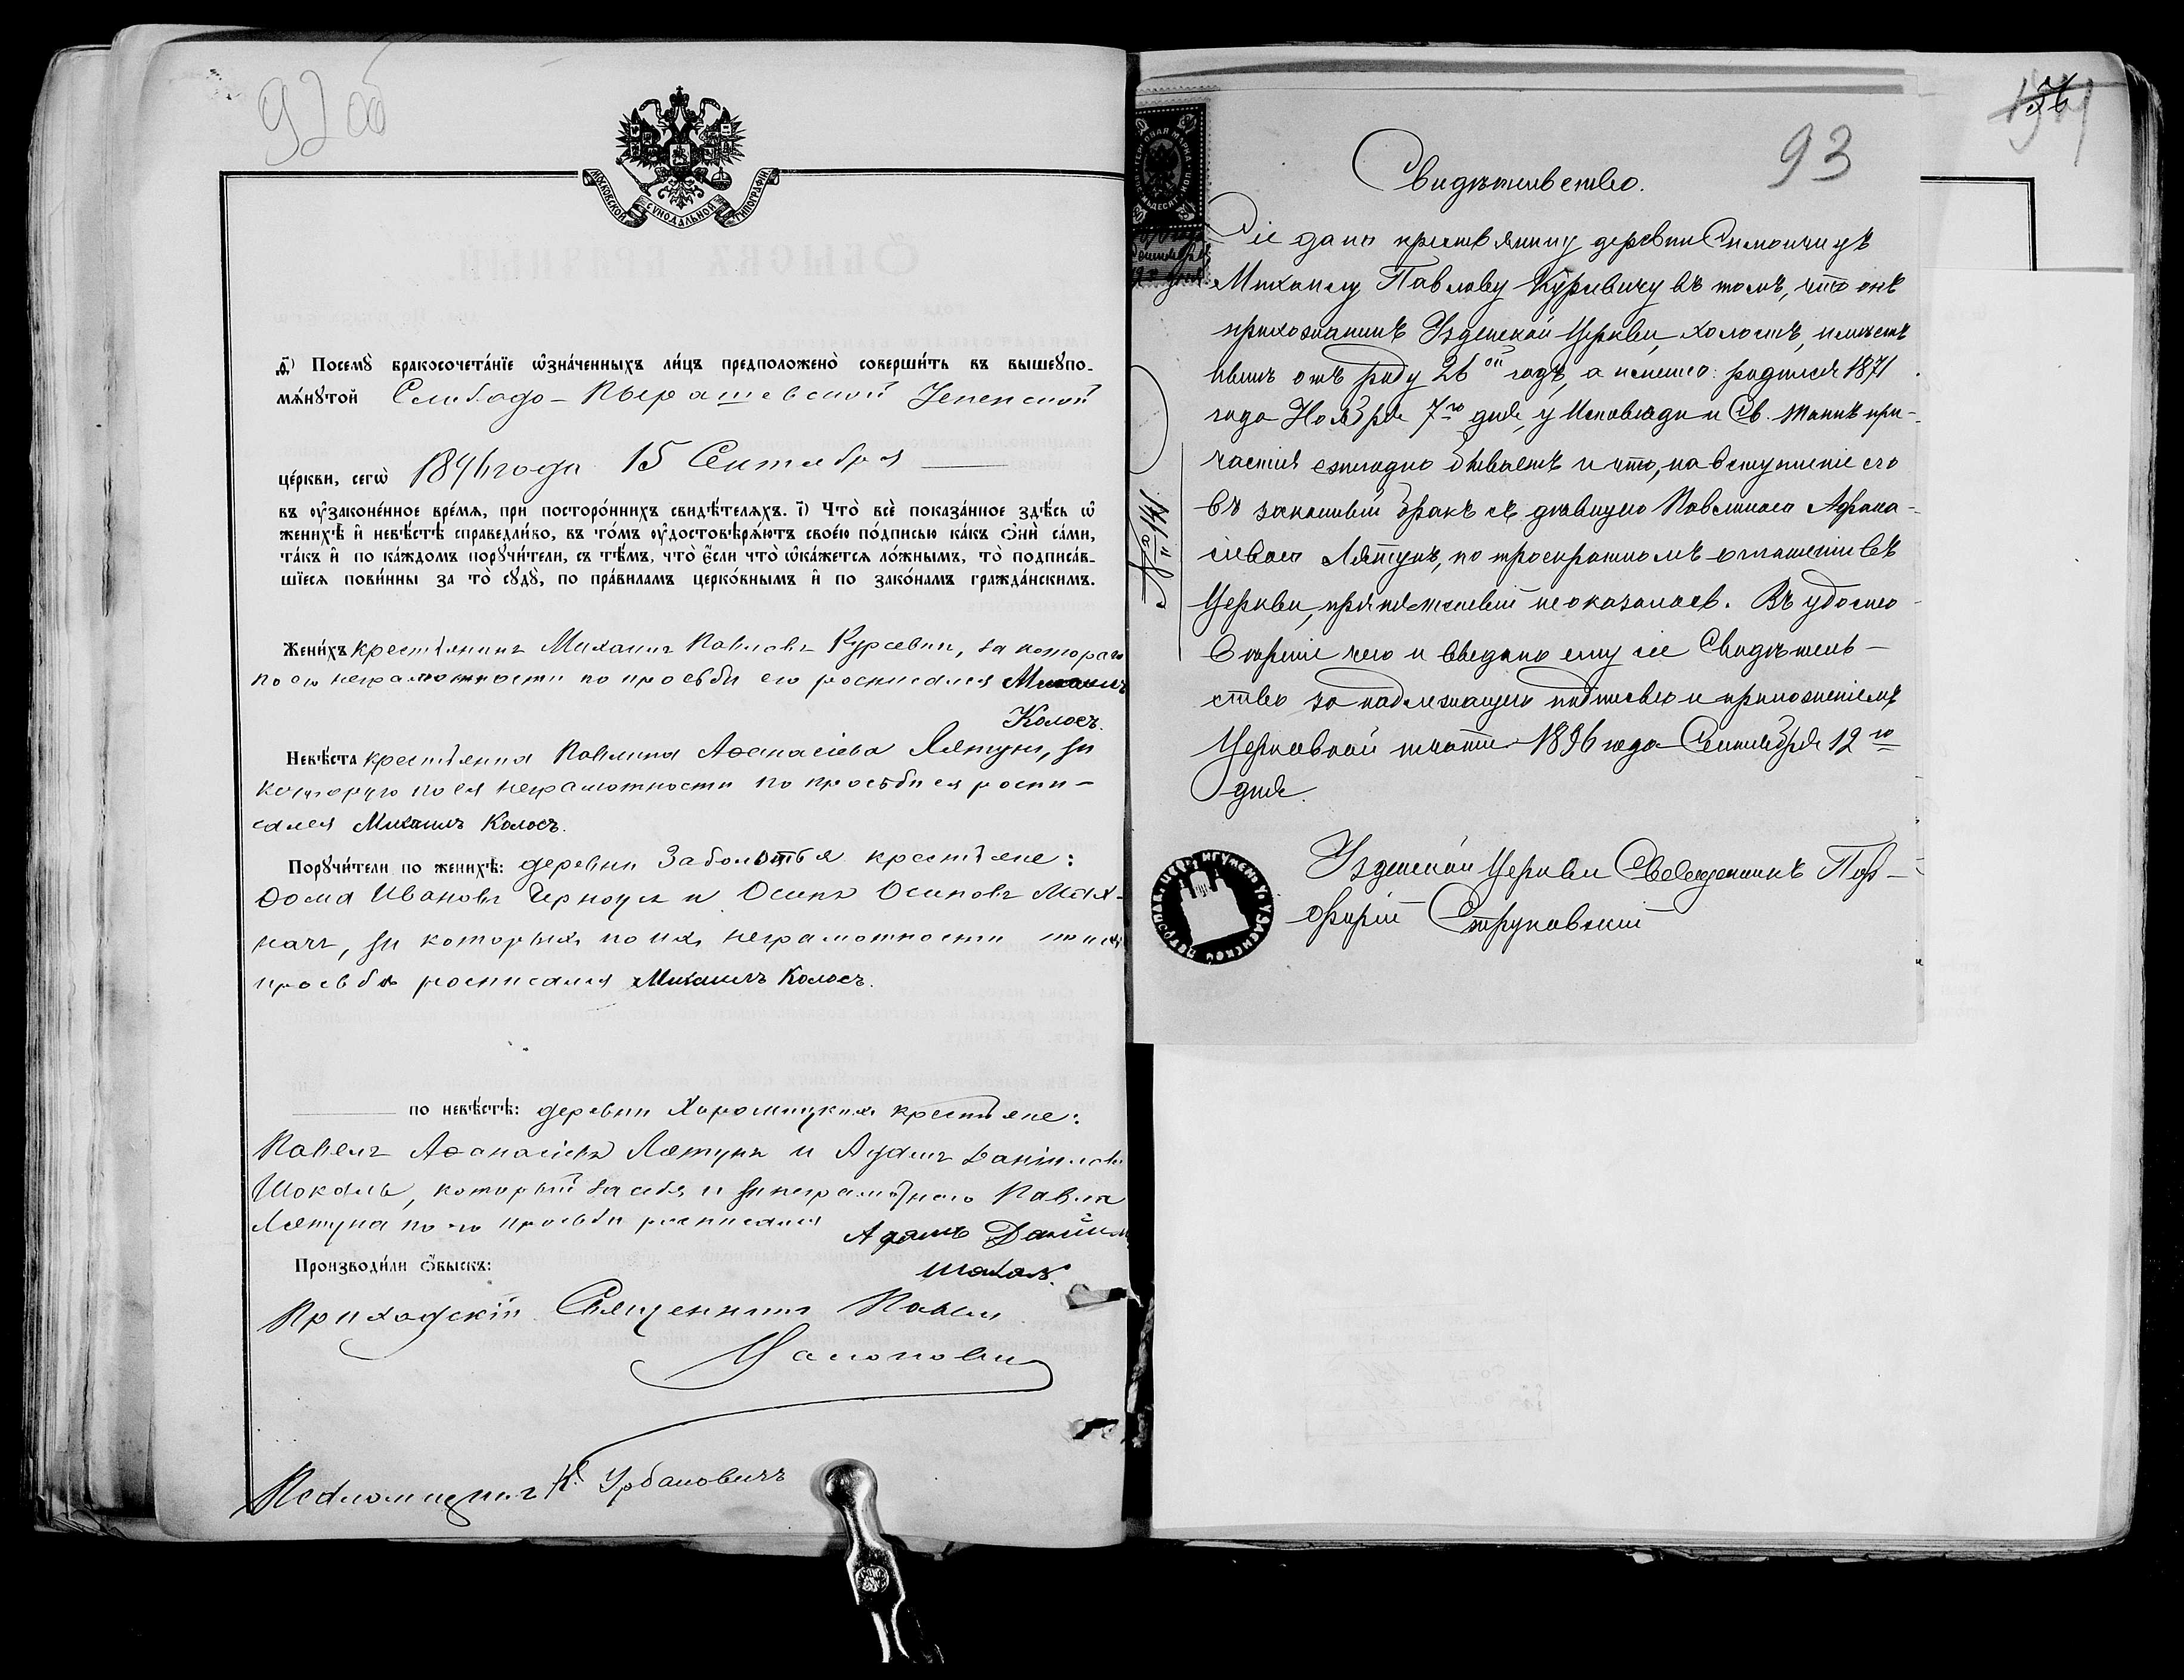 92 об
МОСКОВСКОЙ СѴНОДАЛЬНОЙ ТИПОГРАФІИ
д҃) Посемꙋ̀ бракосочета́нїе ѡ҆зна́ченныхъ ли́цъ предположено̀ соверши́ть въ вышеꙋпо-
мѧ́нꙋтой Слободо-Пырашевской Успенской
це́ркви, сегѡ̀ 1896 года 15 Сентября
въ ᲂу҆законе́нное вре́мѧ, прѝ посторо́ннихъ свидѣ́телѧхъ. і҃) Что̀ всѐ пока́занное здѣ́сь ѡ҆
женихѣ̀ и҆ невѣ́стѣ справедли́во, въ то́мъ ᲂу҆достовѣрѧ́ютъ свое́ю по́дписью ка́къ ѻ҆нѝ са́ми,
та́къ и҆ по ка́ждомъ порꙋчи́тели, съ тѣ́мъ, что̀ є҆́сли что̀ ѡ҆ка́жетсѧ ло́жнымъ, то̀ подписа́в-
шїесѧ пови́нны за то̀ сꙋдꙋ̀, по пра́виламъ церко́внымъ и҆ по зако́намъ гражда́нскимъ.
Жени́хъ крестьянинъ Михаилъ Павловъ Курсевич, за котораго
по его неграмотности по просьбѣ его росписался Михаилъ
Колосъ.
Невѣ́ста крестьянка Павлина Аѳанасіева Лятунъ, за
которую по ея неграмотности по просьбѣ ея роспи-
сался Михаилъ Колосъ.
Порꙋчи́тели по женихѣ̀: деревни Заболотья крестьяне:
Ѳома Ивановъ Черноукъ и Осипъ Осиповъ
за которыхъ по ихъ неграмотности по ихъ
просьбѣ росписался Михаилъ Колосъ.
по невѣ́стѣ: деревни Хоромицкихъ крестьяне:
Павелъ Аѳанасіевъ Лятунъ и Адамъ Даніиловъ
Шокаль, который за себя и за неграмотнаго Павла
Лятуна по его просьбѣ росписался Адамъ Даніил
шакаль.
Производи́ли ѻ҆́быскъ:
Приходскій Священникъ Павелъ
Псаломщикъ К. Урбановичъ
93
Свидѣтельство.
Сіе дано крестьянину деревни Симоничъ
Михаилу Павлову Курсевичу въ томъ, что онъ
прихожанинъ Узденской Церкви, холостъ, имѣетъ
нынѣ отъ роду 26 ой годъ, а именно: родился 1871
года Ноября 7го дня, у Исповѣди и Св. Таинъ при-
частія ежегодно бываетъ и что, на вступленіе его
въ законный бракъ съ дѣвицею Павлиною Афана-
сіевою Лятунъ, по троекратномъ оглашеніи въ
Церкви, препятствій не оказалось. Въ удосто-
вѣреніе чего и выдано ему сіе Свидѣтель-
ство за надлежащею подписью и приложеніемъ
Церковной печати 1896 года Сентября 12го
дня.
№ 141
Узденской Церкви Священникъ Пор-
фирій Струковскій